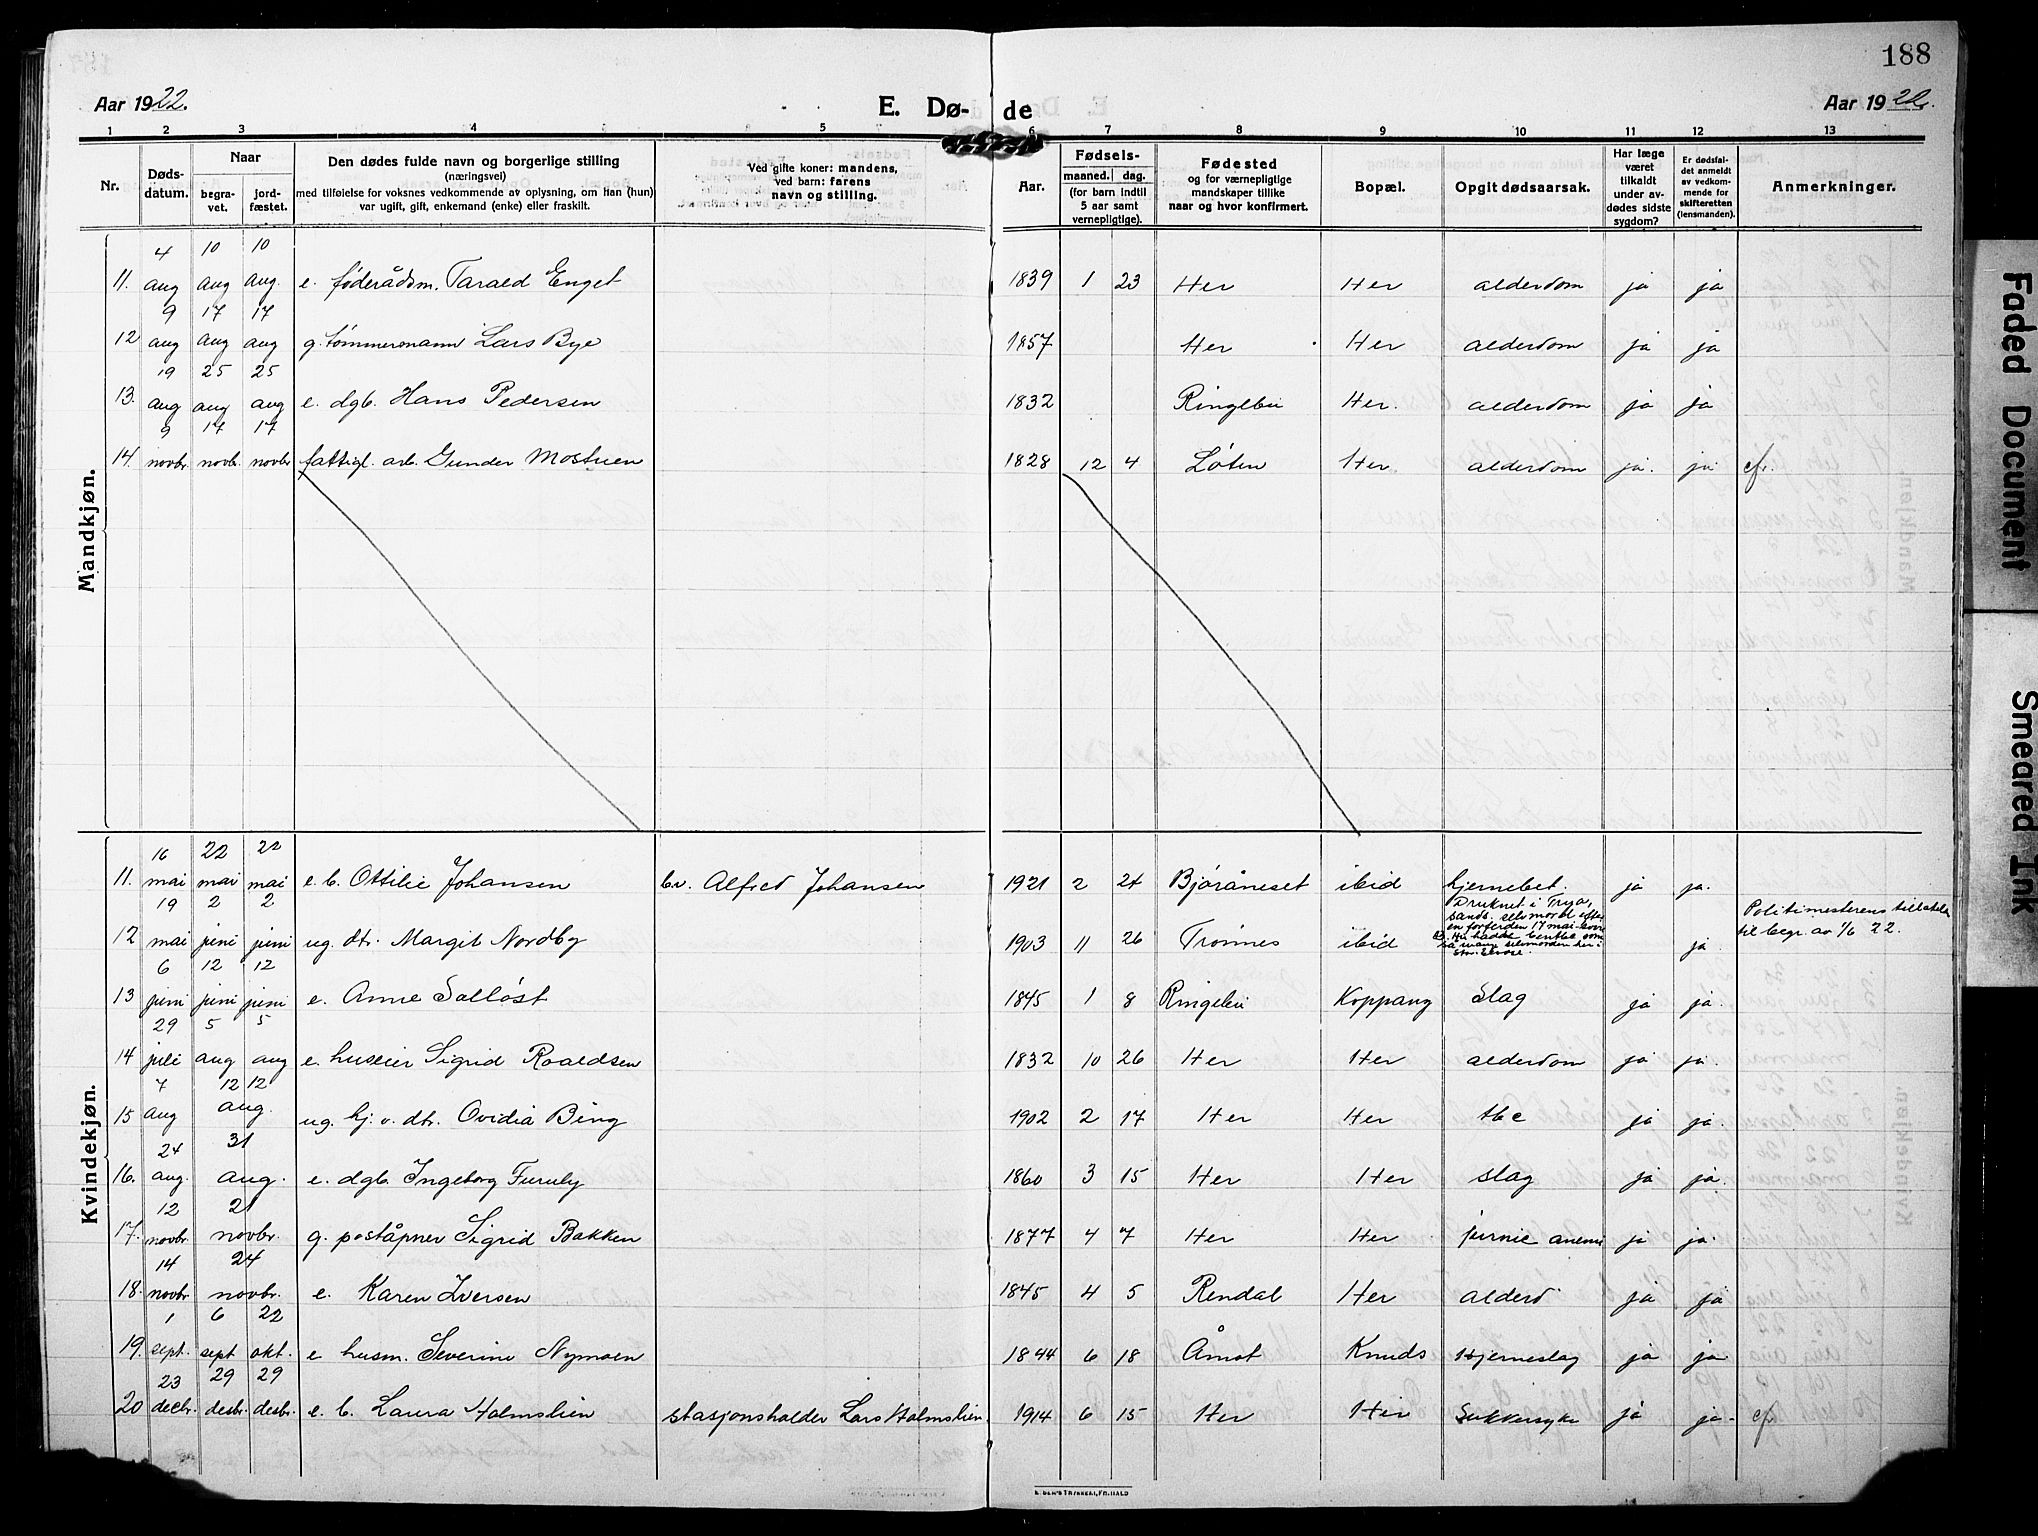 188
Aar 1922.
E. Dø- de
Aar 1922.
1 2 3 4 5 6 7 8 9 10 11 12 13
Nr.
Døds-
datum.
Naar
begra-
vet.
jord-
fæstet.
Den dødes fulde navn og borgerlige stilling
(næringsvei)
med tilføielse for voksnes vedkommende av oplysning, om han (hun)
var ugift, gift, enkemand (enke) eller fraskilt.
Ved gifte koner: mandens,
ved barn: farens
navn og stilling.
Aar.
Fødsels-
maaned. dag.
(for barn indtil
5 aar samt
vernepligtige).
Fødested
og for værnepligtige
mandskaper tillike
naar og hvor konfirmert.
Bopæl.
Opgit dødsaarsak.
Har læge
været
tilkaldt
under av-
dødes sidste
sygdom?
Er dødsfal-
det anmeldt
av vedkom-
mende for
skifteretten
(lensmanden).
Anmerkninger.
Mandkjøn.
4 10 10
11. aug aug aug. e. føderådsm. Tarald Enget 1839 1 23 Her Her alderdom ja ja
9 17 17
12 aug aug aug g. tømmermann Lars Bye 1857 Her Her alderdom ja ja
19 25 25
13. aug aug aug e. dgb. Hans Pedersen 1832 Ringebu Her. alderdom ja ja
9 17 17
14. novbr. novbr. novbr fattigl. arb. Gunder Mostuen 1828 12 4 Løten Her alderdom ja. ja cfr.
Kvindekjøn.
16 22 22
11. mai mai mai e. b. Ottilie Johansen bv. Alfred Johansen 1921 2 24 Bjøråneset ibid hjernebet. ja ja.
19 2 2
12 mai juni juni ug. dtr. Margit Nordby 1903 11 26 Trønnes ibid Druknet i Trya,
sands. selvmord efter
en forferden 17 mai-
så mange selvmorden her i
ja Politimesterens tillatelse
til begr. av 1/6 22.
6 12 12
13 juni juni juni e. Anne Solløst 1845 1 8 Ringebu Koppang Slag ja ja.
29 5 5
14 juli aug aug e. huseier Sigrid Roaldsen 1832 10 26 Her Her alderdom ja ja.
7 12 12
15 aug aug. ug. hj. v. dtr. Ovidia Bing 1902 2 17 Her Her tbc ja ja.
24 31
16. aug. aug. e. dgb. Ingeborg Furuly 1860 3 15 Her Her slag ja ja.
12 21
17. novbr. novbr. g. poståpner Sigrid Bakken 1877 4 7 Her Her pernic anemi ja ja.
14 24
18. novbr. novbr. e. Karen Iversen 1845 4 5 Rendal Her alderd ja ja
1 6 22
19. sept. sept okt. e husm. Severine Nymoen 1844 6 18 Åmot Knuds Hjerneslag ja ja
23 29 29
20 decbr. desbr. desbr. e. b. Laura Holmslien stasjonsholder Lars Holmslien. 1914 6 15 Her Her Sukkersyke ja ja. cfr.
Faded Document
Smeared Ink